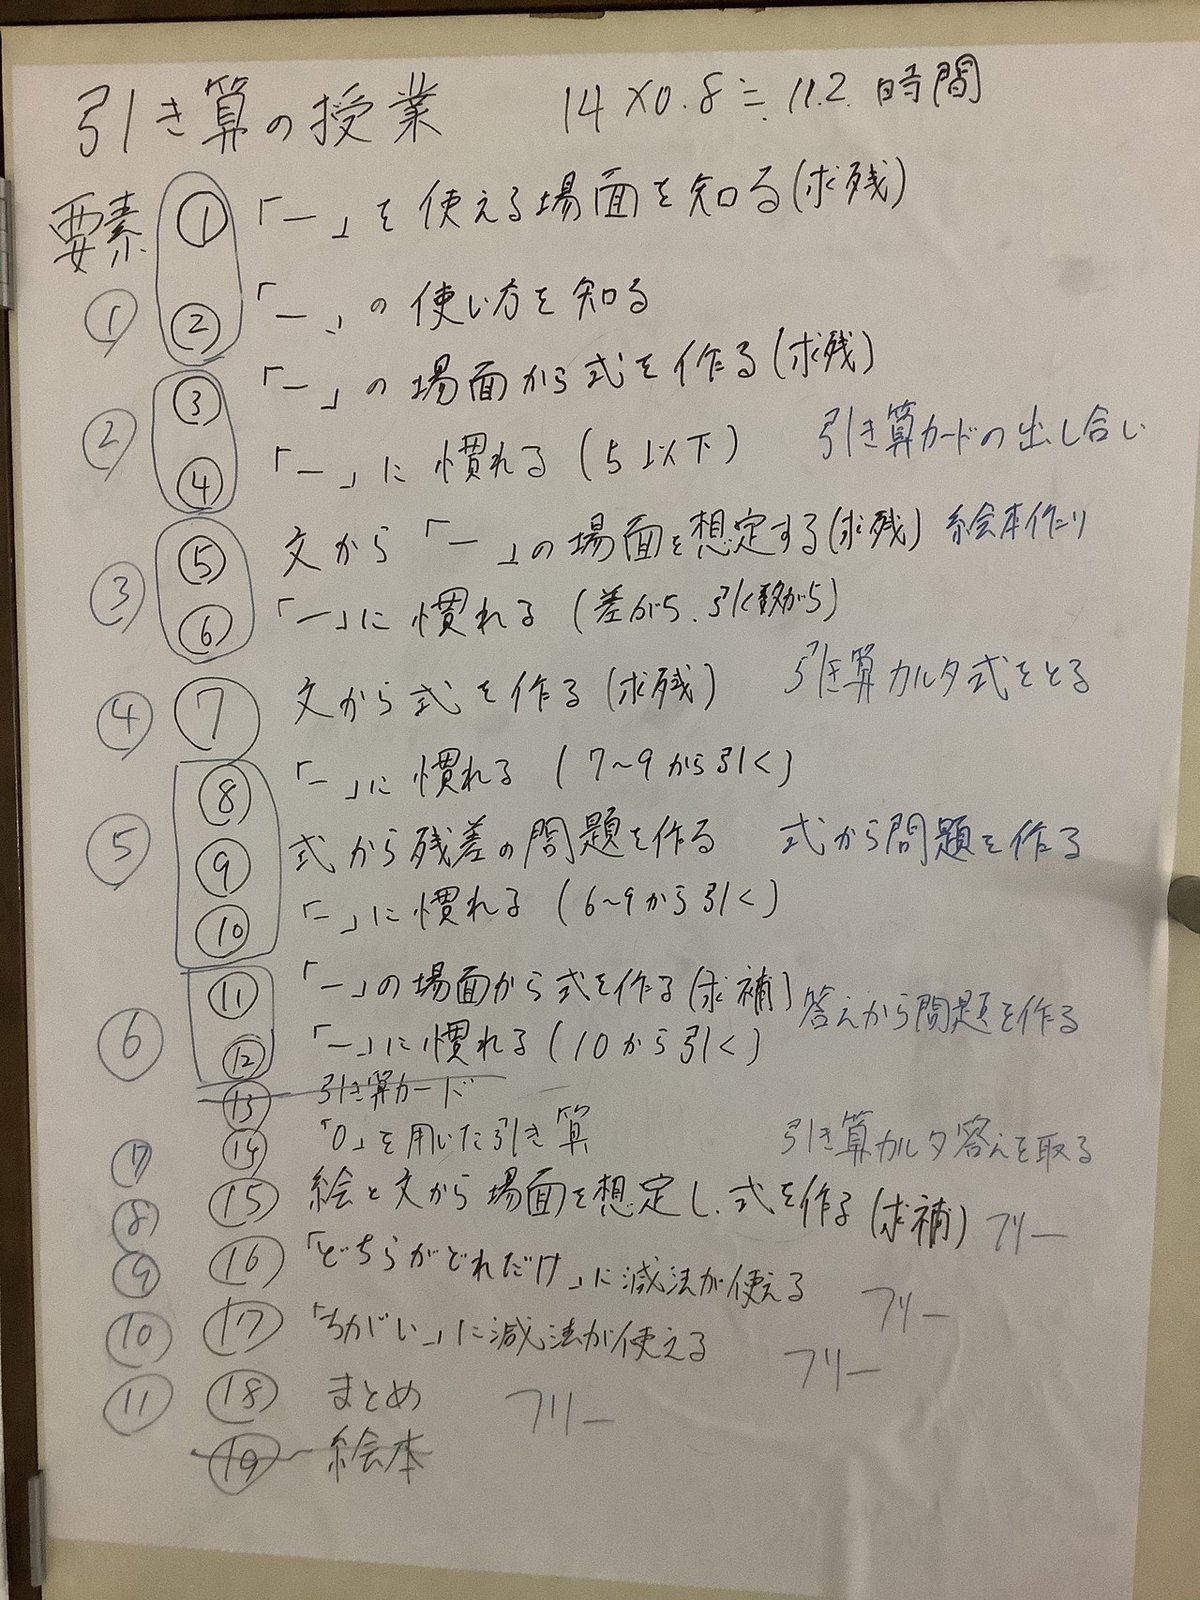 引き算の授業 14×0.8≒11.2時間
要素 ① 「ー」を使える場面を知る(求残)
① ② 「ー」の使い方を知る
③ 「ー」の場面から式を作る(求残)
② ④ 「ー」に慣れる(5以下) 引き算カードの出し合い
⑤ 文から「ー」の場面を想定する(求残) 絵本作り
③ ⑥ 「ー」に慣れる(差が5、引く数が5)
④ ⑦ 文から式を作る(求残) 引き算カルタ式をとる
⑧ 「ー」に慣れる(7~9から引く)
⑤ ⑨ 式から残差の問題を作る 式から問題を作る
⑩ 「ー」に慣れる(6~9から引く)
⑪ 「ー」の場面から式を作る(求補) 答えから問題を作る
⑥ ⑫ 「ー」に慣れる(10から引く)
⑬ 引き算カード
⑦ ⑭ 「0」を用いた引き算 引き算カルタ答えを取る
⑧ ⑮ 絵と文から場面を想定し、式を作る(求補) フリー
⑨ ⑯ 「どちらがどれだけ」に減法が使える フリー
⑩ ⑰ 「ちがい」に減法が使える フリー
⑪ ⑱ まとめ フリー
⑲ 絵本